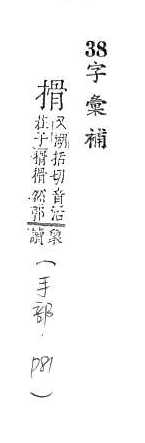 38字彙補
搰
又湖括切音活
莊子搰搰然郭
象
讀
（手部. p81）